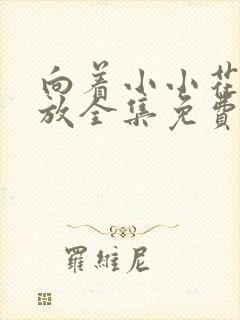 向着小小花
放全集免费
羅維尼